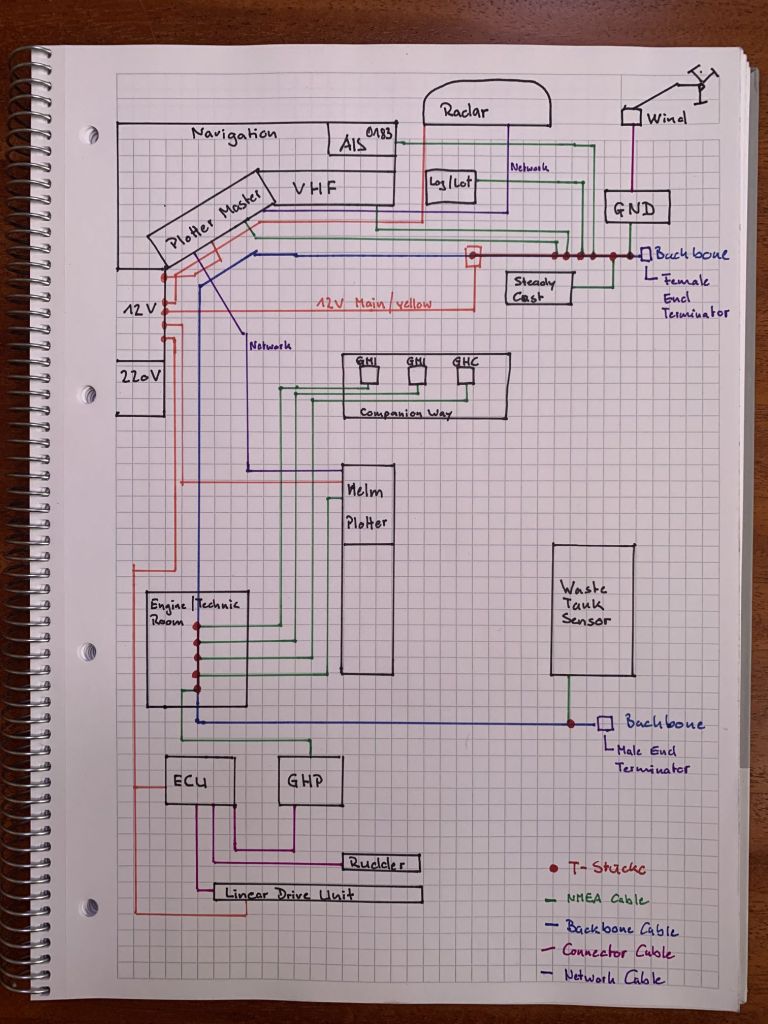 Navigation
AIS 0183
Radar
Wind
VHF
Log/Lot
Network
Plotter Master
GND
Backbone
Female
End
Terminator
Steady
Cast
12V
12V Main/yellow
Network
220V
GMI
GMI
GHC
Companion Way
Helm
Plotter
Engine/Technic
Room
Waste
Tank
Sensor
Backbone
Male End
Terminator
ECU
GHP
Rudder
Linear Drive Unit
NMEA Cable
Backbone Cable
Connector Cable
Network Cable